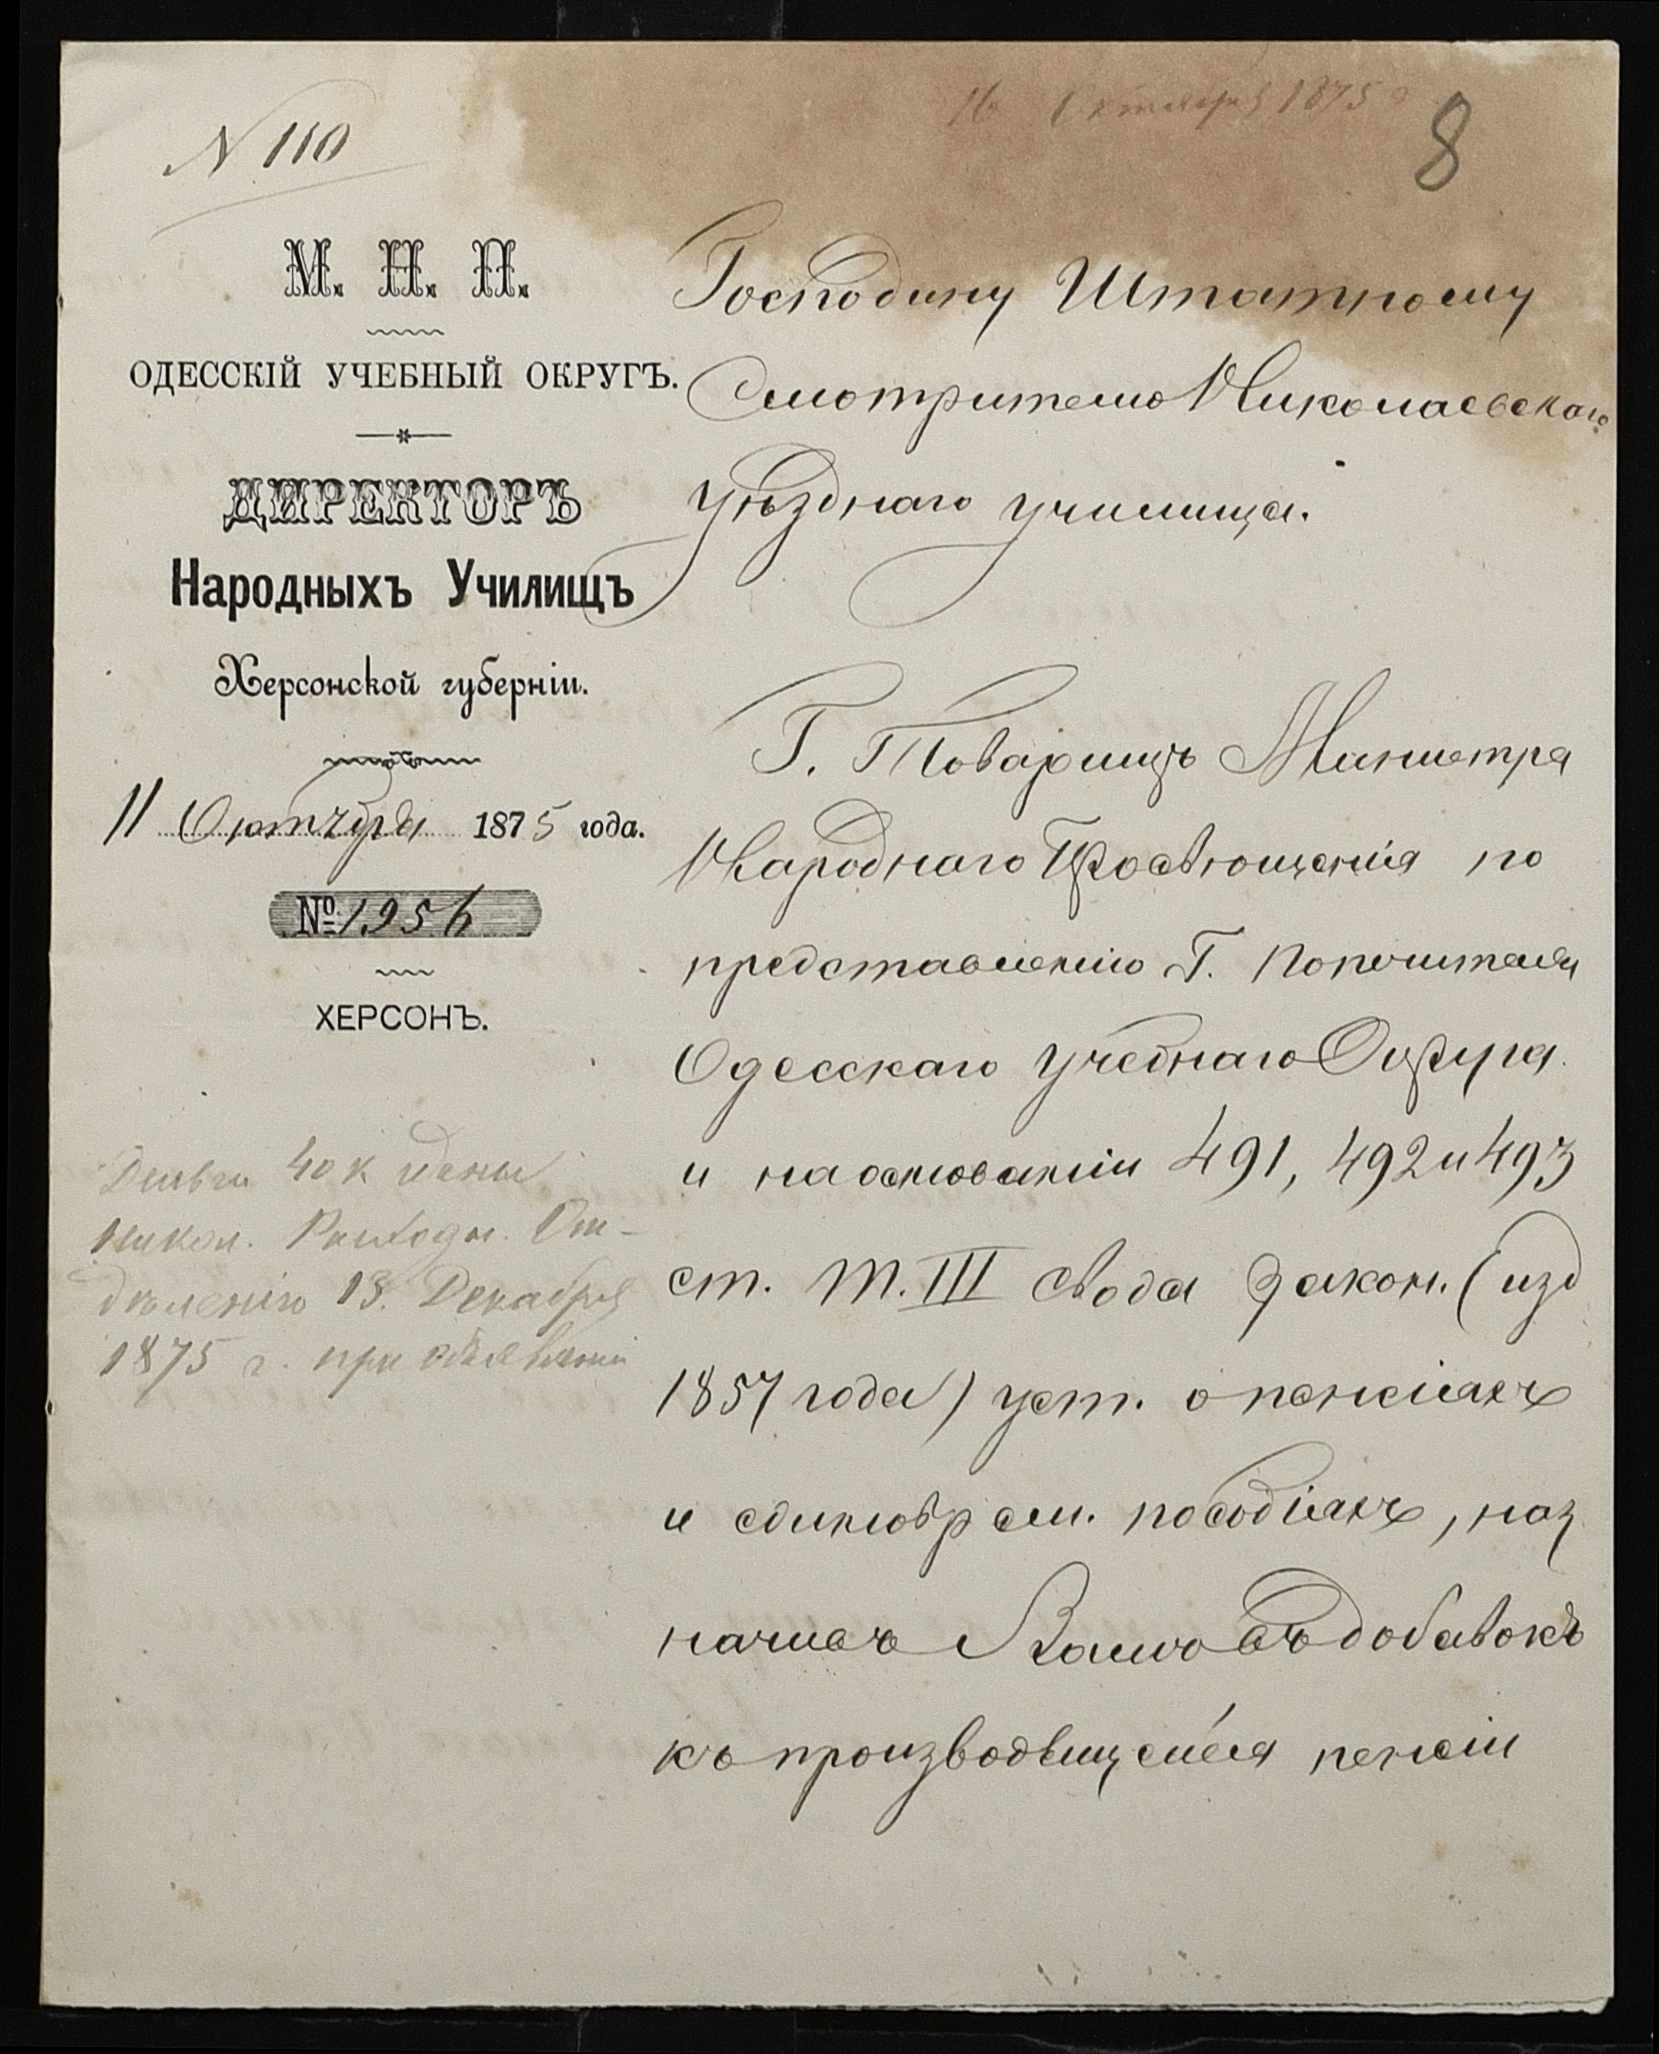 16 Октября 1875 г
8
N 110
М. Н. П.
ОДЕССКІЙ УЧЕБНЫЙ ОКРУГЪ.
ДИРЕКТОРЪ
Народныхъ Училищъ
Херсонской губерніи.
11 Октября 1875 года.
№ 1956
ХЕРСОНЪ.
Деньги 40 к
Никол. Расходн. От-
дѣленію 13. Декабря
1875 г. при объявленіи
Господину Штатному
Смотрителю Николаевскаго
уѣзднаго училища.
Г. Товарищъ Министра
Народнаго Просвѣщенія по
представленію Г. Попечителя
Одесскаго Учебнаго Округа
и на основаніи 491, 492 и 493
ст. т. III Свода Закон. (изд
1857 года) уст. о пенсіяхъ
и единоврем. пособіяхъ, наз
начилъ Вамъ въ добавокъ
къ производящейся пенсіи